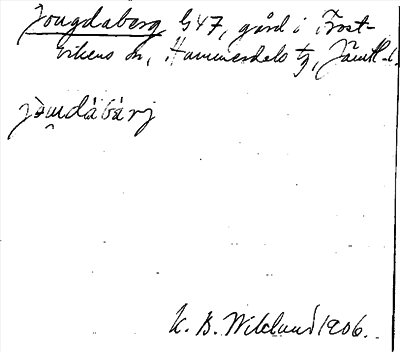 Jougdaberg, b 47, gård i Frost-
vikens sn, Hammerdals tg, Jämtl. l.
jòu̯dábárj
K. B. Wiklund 1906.